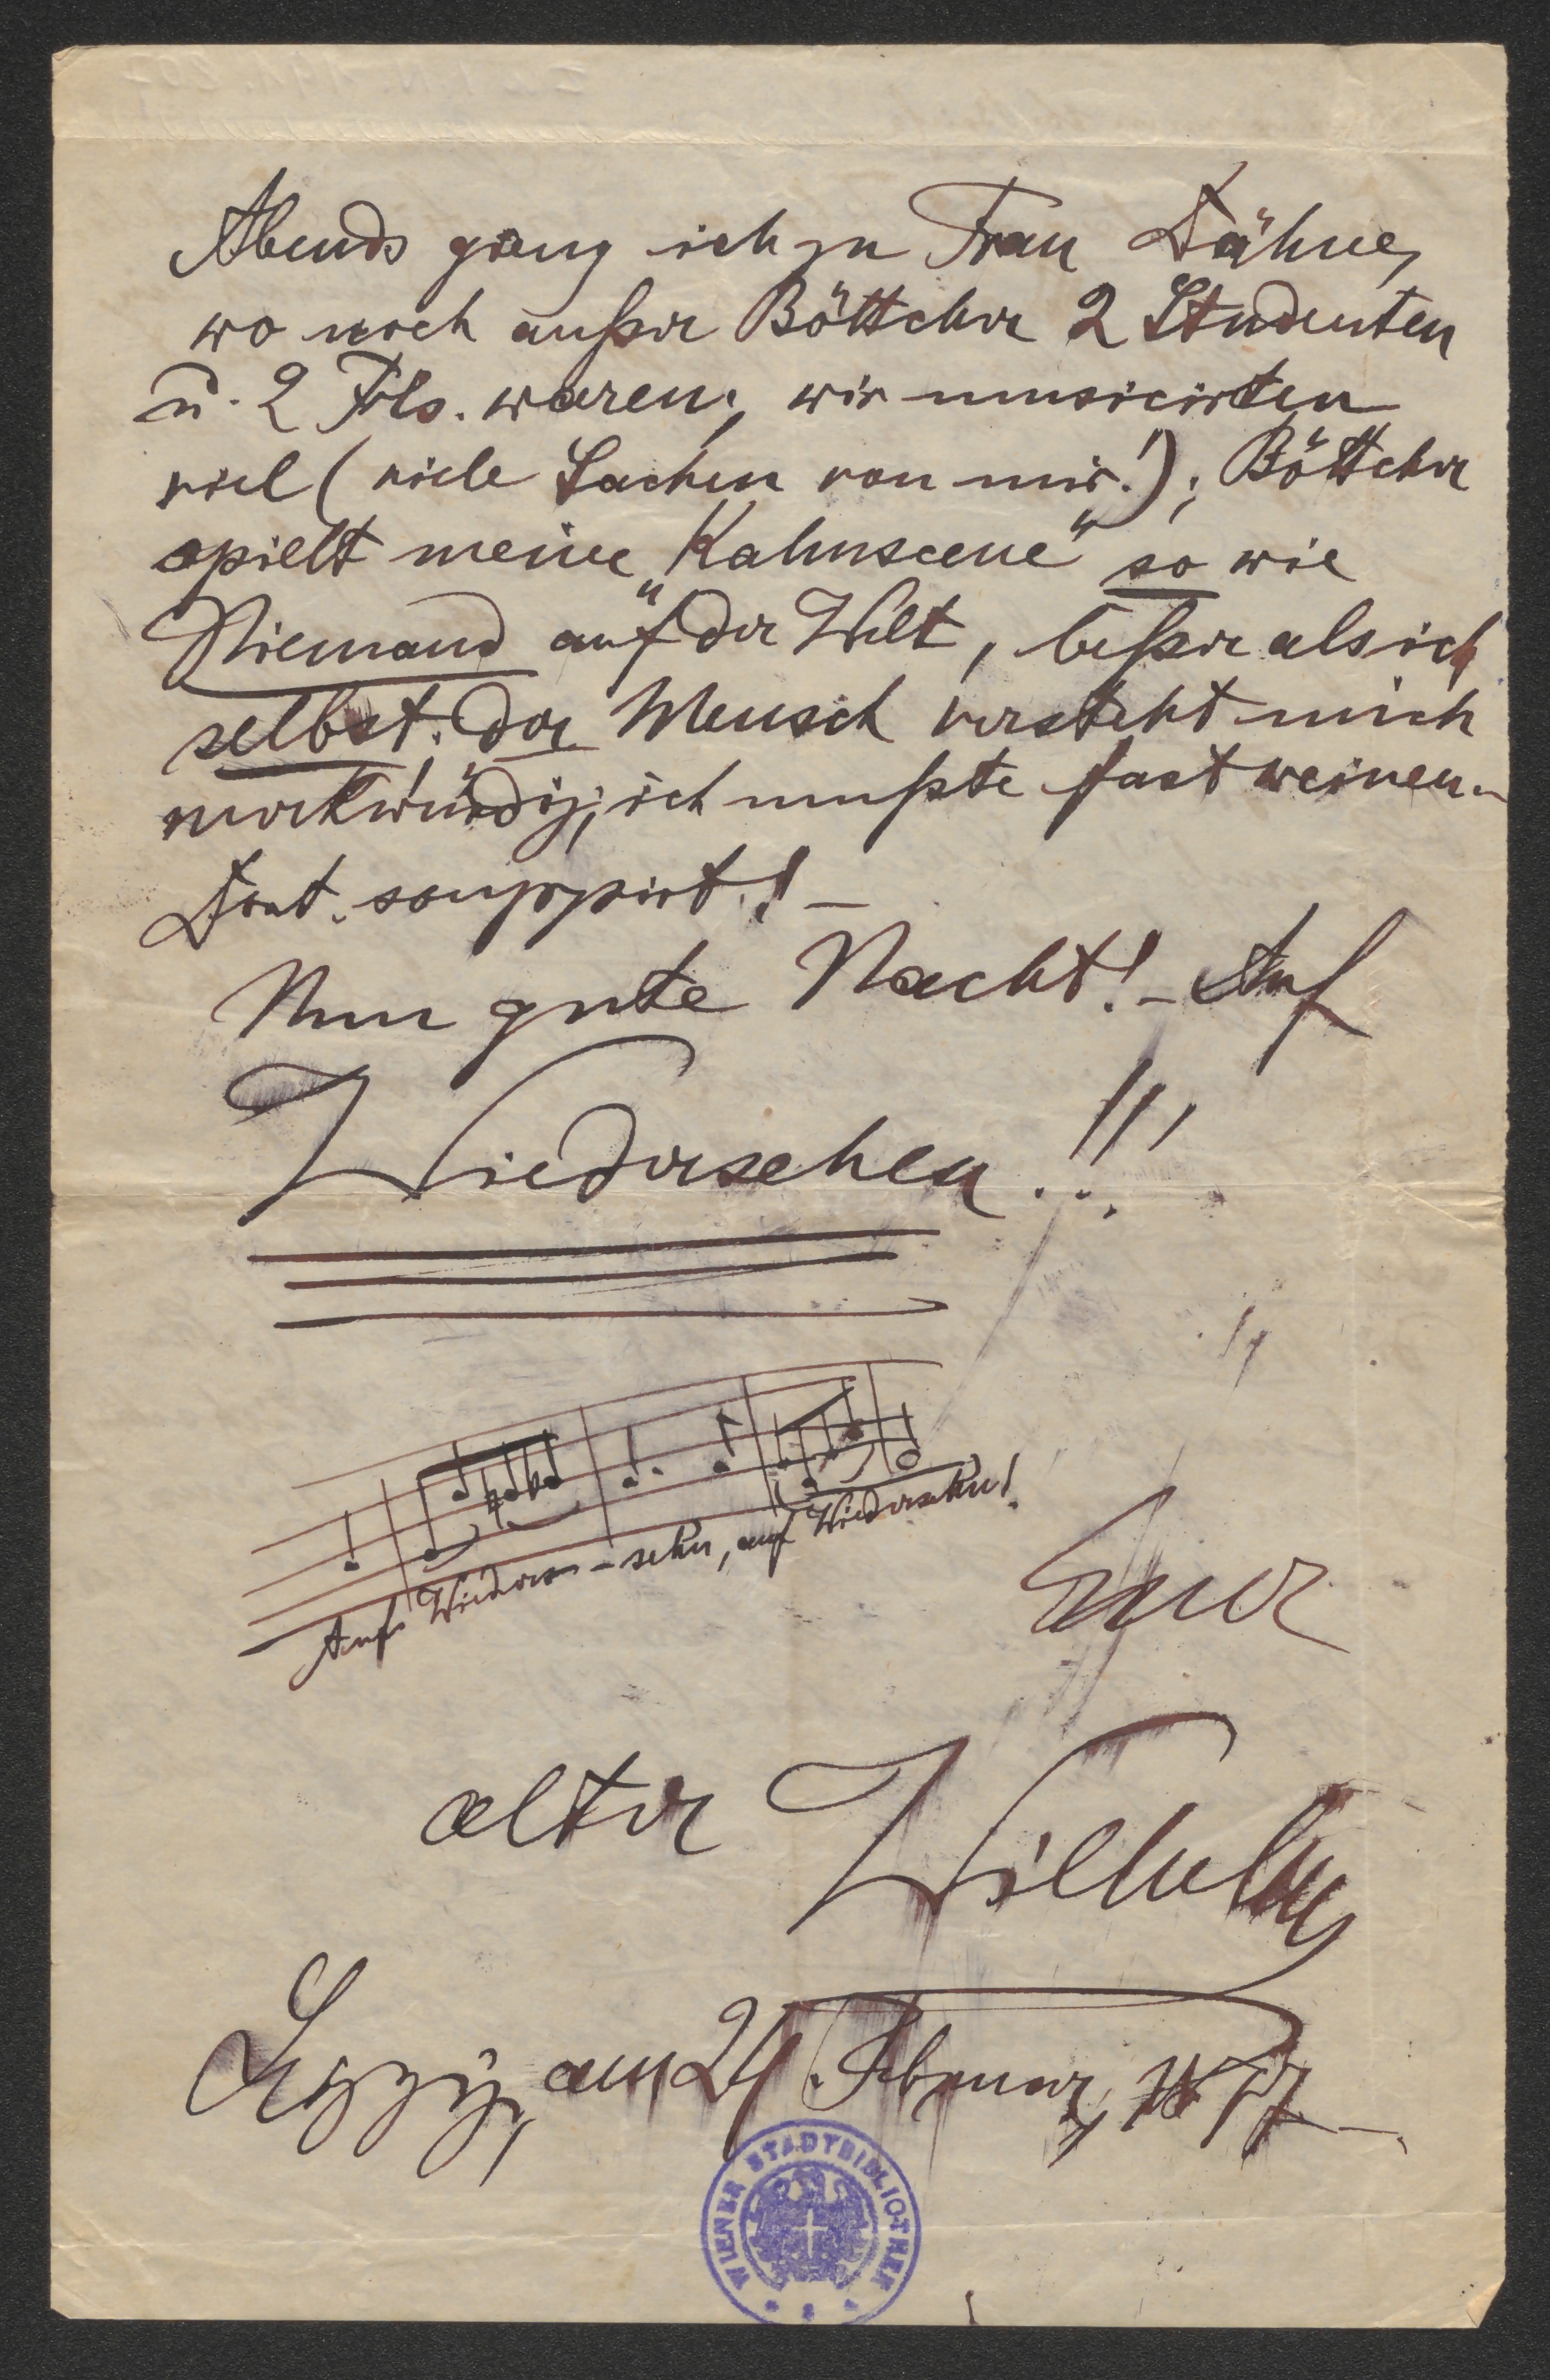 Abends gieng ich zu Frau Dähne,
wo noch außer Böttcher 2 Studenten
u. 2 Frls. waren; wir musicirten
viel (viele Sachen von mir!); Böttcher
spielt meine „Kahnscene" so wie
Niemand auf der Welt, beßer als ich
selbst; der Mensch versteht mich
merkwürdig; ich mußte fast weinen.–
Dort soupirt! –
Nun gute Nacht! – Auf
Wiedersehen!!!
Auf Wieder – sehn, auf Wiedersehn!
Euer
alter Wilhelm
Leipzig, am Februar 1877
WIENER STADTBIBLIOTHEK